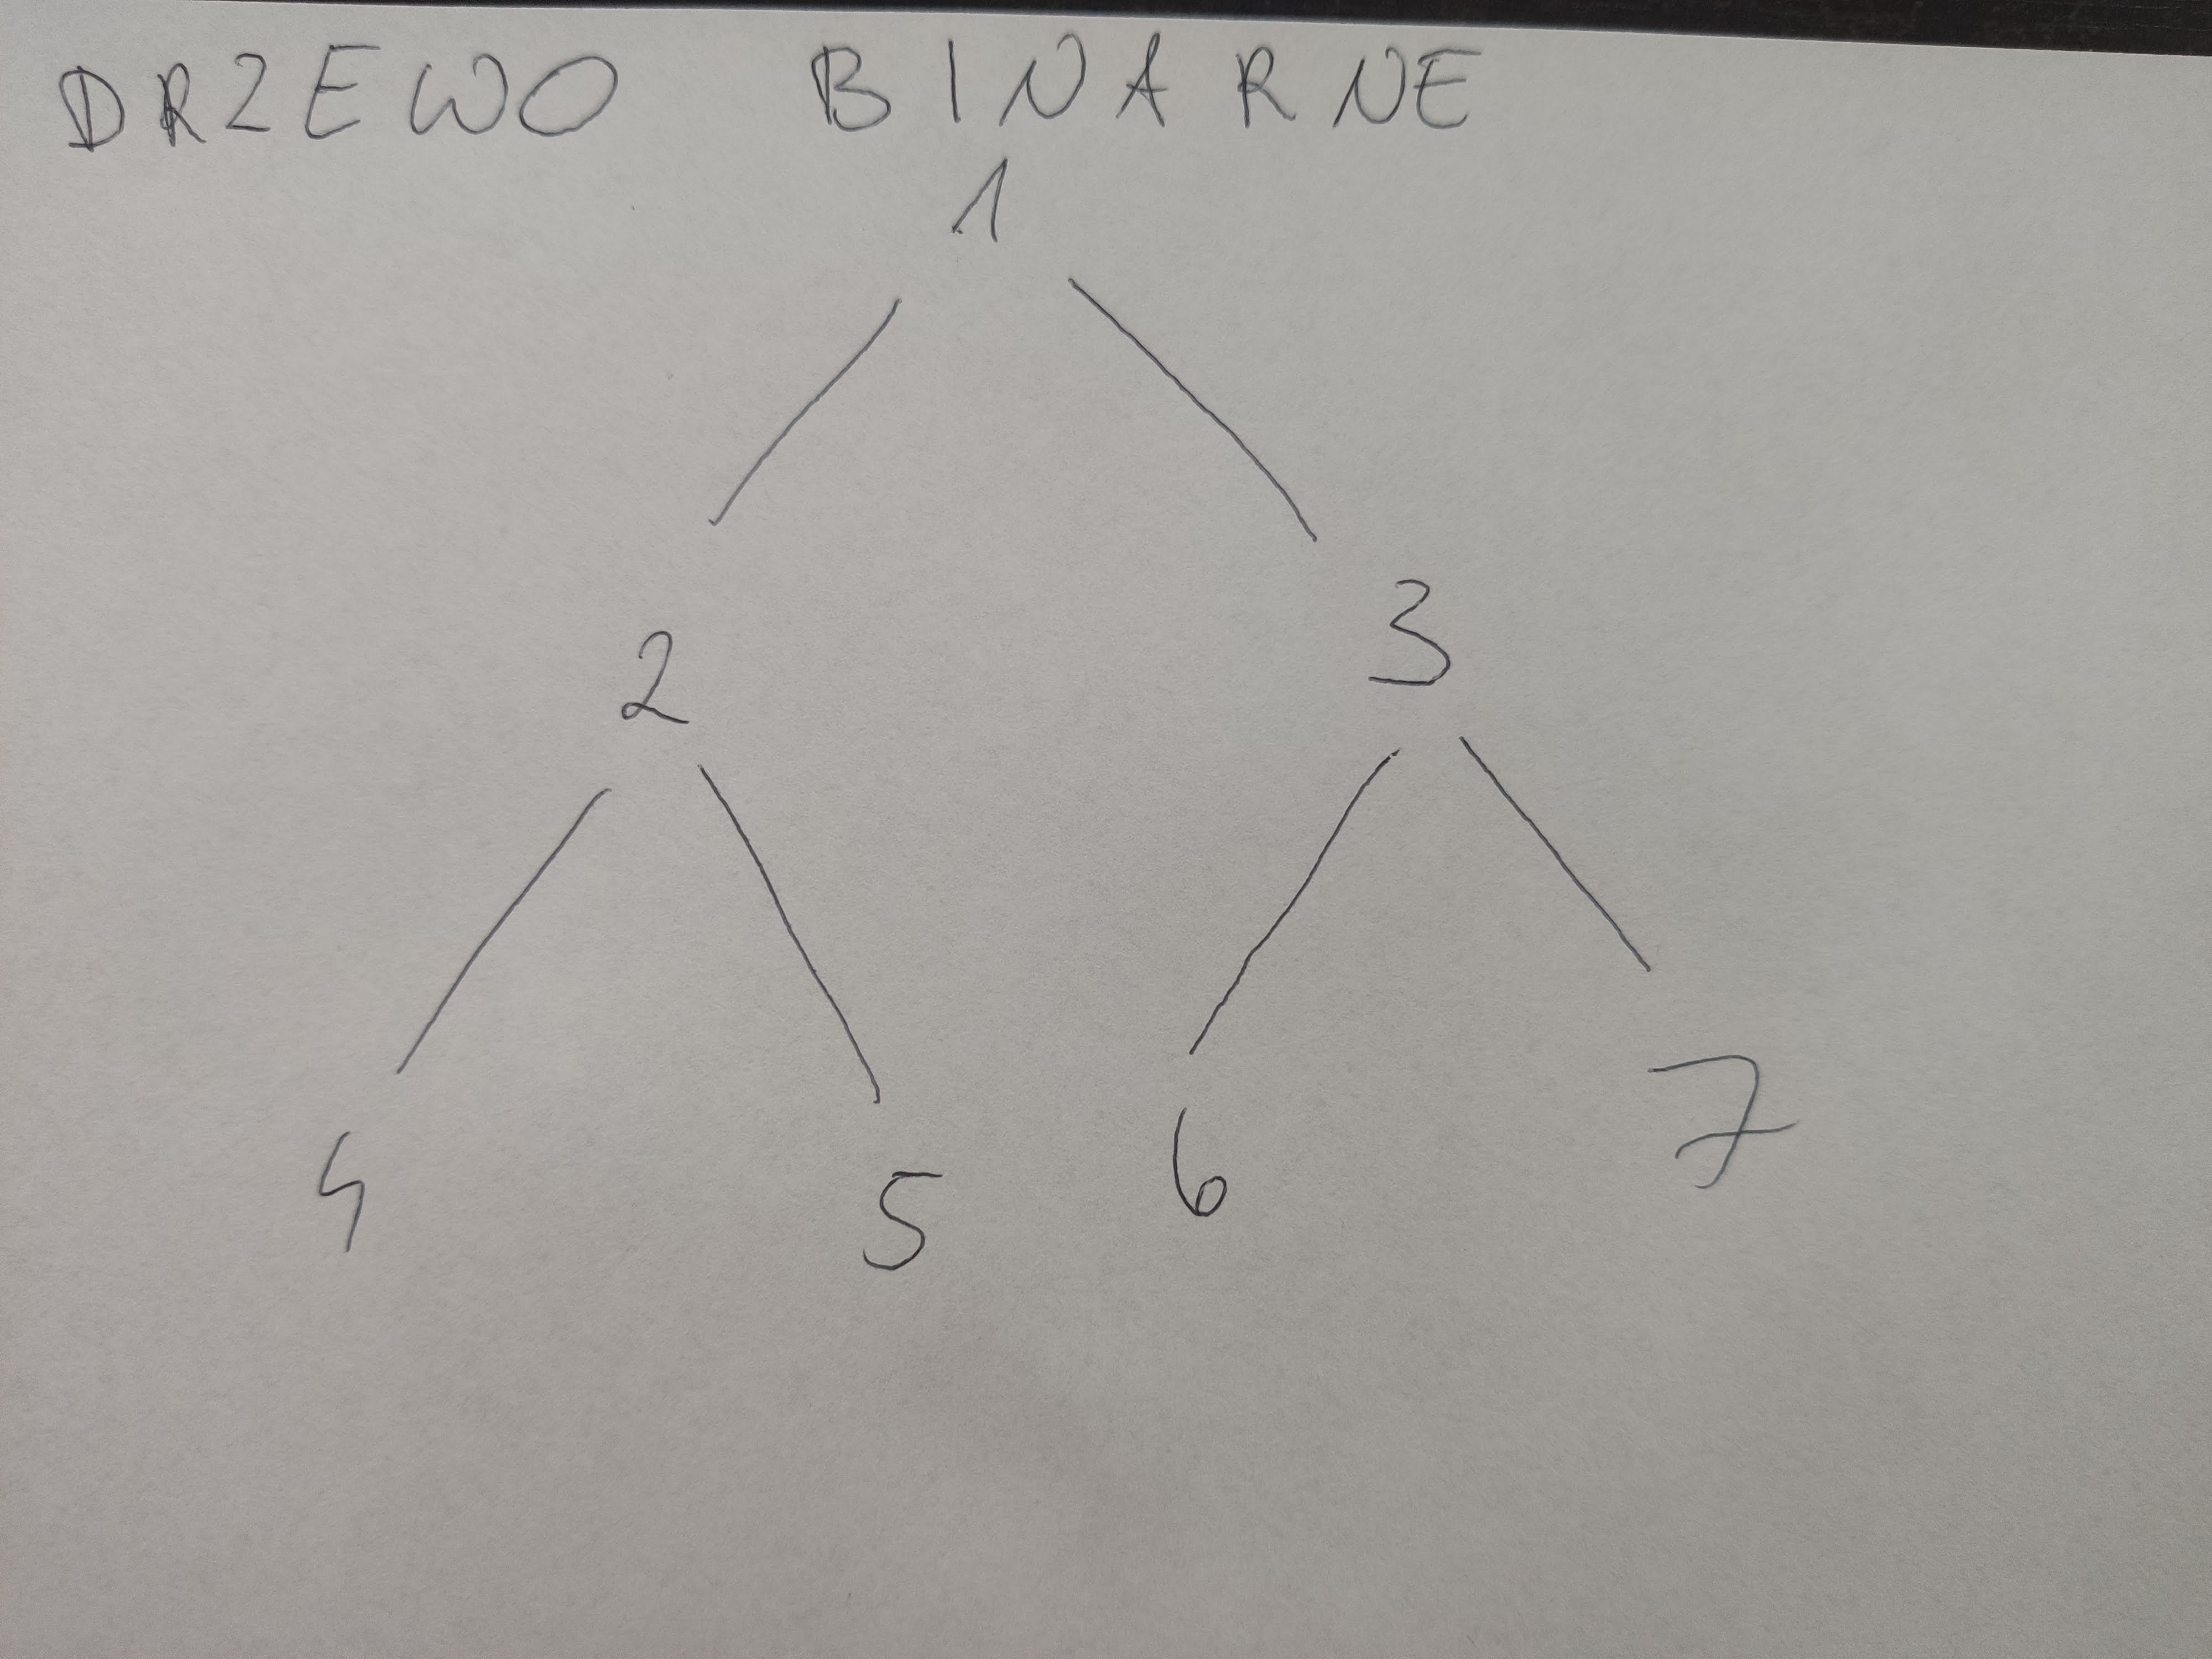 DRZEWO BINARNE
1
2 3
4 5 6 7